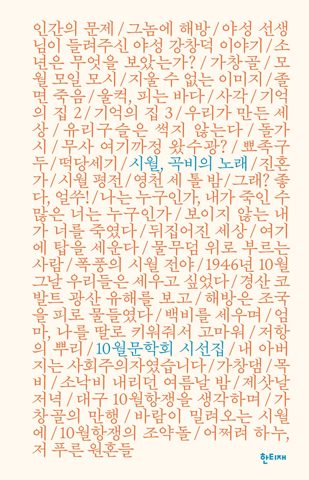 인간의 문제/그놈에 해방/야성 선생
님이 들려주신 야성 강창덕 이야기/소
년은 무엇을 보았는가?/가창골/모
월 모일 모시/지울 수 없는 이미지/졸
면 죽음/울컥, 피는 바다/사각/기억
의 집 2/기억의 집 3/우리가 만든 세
상/유리구슬은 썩지 않는다/돌가
시/무사 여기까정 왔수광?/뾰족구
두/떡당세기/시월, 곡비의 노래/진혼
가/시월 평전/영천 세 톨 밤/그래? 좋
다, 얼쑤!/나는 누구인가, 내가 죽인 수
많은 너는 누구인가/보이지 않는 내
가 너를 죽였다/뒤집어진 세상/여기
에 탑을 세운다/물무덤 위로 부르는
사람/폭풍의 시월 전야/1946년 10월
그날 우리들은 세우고 싶었다/경산 코
발트 광산 유해를 보고/해방은 조국
을 피로 물들였다/백비를 세우며/엄
마, 나를 딸로 키워줘서 고마워/저항
의 뿌리/10월문학회 시선집/내 아버
지는 사회주의자였습니다/가창댐/목
비/소낙비 내리던 여름날 밤/제삿날
저녁/대구 10월항쟁을 생각하며/가
창골의 만행/바람이 밀려오는 시월
에/10월항쟁의 조약돌/어쩌려 하누,
저 푸른 원혼들
한티재